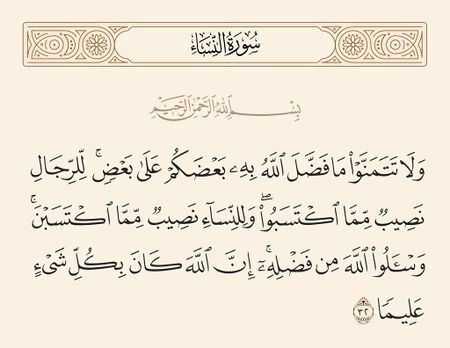 سُورَةُ النِّسَاءِ
بِسْمِ اللَّهِ الرَّحْمَٰنِ الرَّحِيمِ
وَلَا تَتَمَنَّوْا۟ مَا فَضَّلَ ٱللَّهُ بِهِۦ بَعْضَكُمْ عَلَىٰ بَعْضٍۚ لِّلرِّجَالِ
نَصِيبٌ مِّمَّا ٱكْتَسَبُوا۟ۖ وَلِلنِّسَآءِ نَصِيبٌ مِّمَّا ٱكْتَسَبْنَۚ
وَسْـَٔلُوا۟ ٱللَّهَ مِن فَضْلِهِۦٓۚ إِنَّ ٱللَّهَ كَانَ بِكُلِّ شَىْءٍ
عَلِيمًا ٣٢